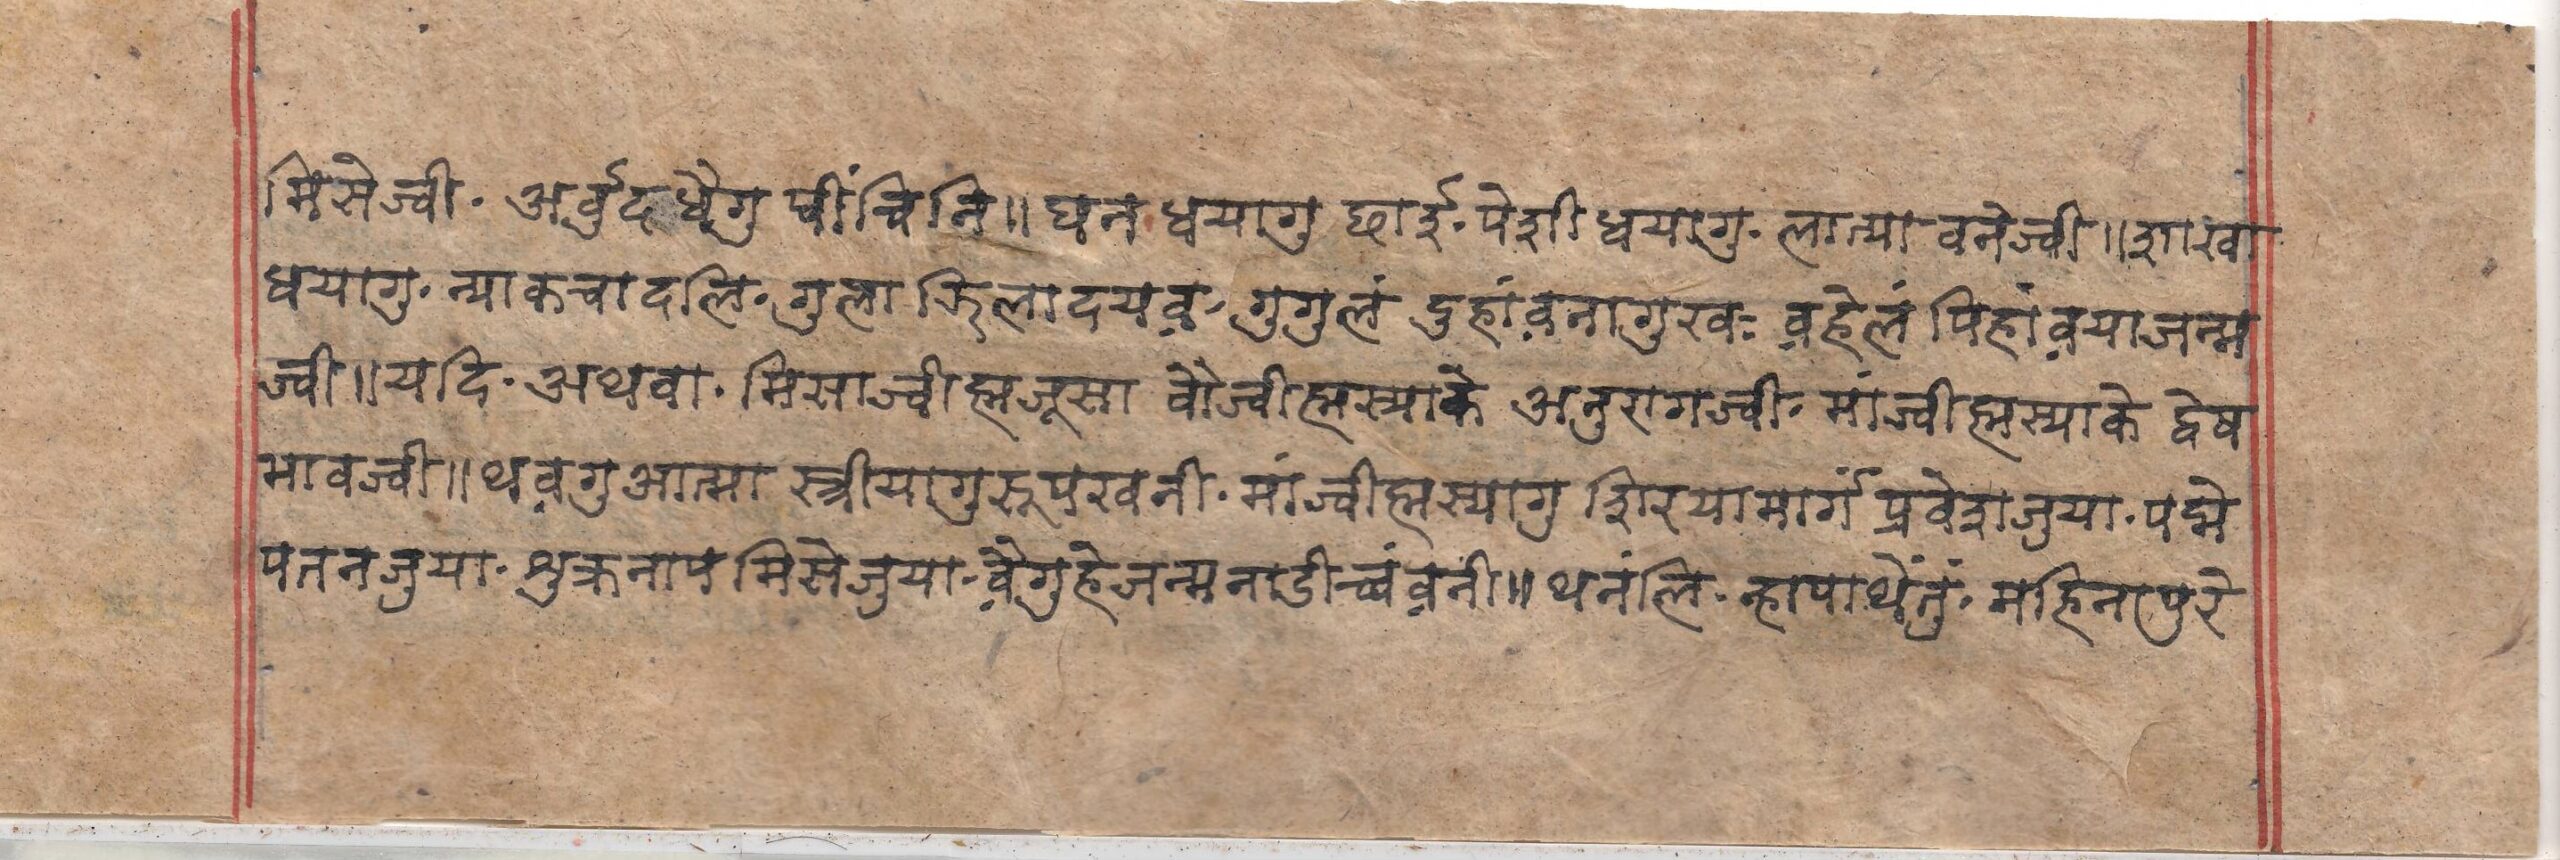 मिसेज्वी. अर्वुदधैगु चींचिनि॥ घन धयागु छाई. पेशी धयागु. लात्या वनेज्वी॥ शाखा
धयागु. न्याकचा दलि. गुला झिला दयव़. गुगुलं दुहांव़नागु खः व़हेलं पिहांव़या जन्म
ज्वी॥ यदि. अथवा. मिसाज्वीह्मजूसा वौज्वीह्मस्याके अनुरागज्वी. मांज्वीह्मस्याके द्वेष
भावज्वी॥ थव़गु आत्मा स्त्रीयागु रूप खनी. मांज्वीह्मस्यागु शिरया मार्गं प्रवेशजुया. पद्मे
पतनजुया. शुक्रनाप मिसेजुया. व़ैगुहे जन्मनाडी च्वंव़नी॥ थनंलि. न्हापाथेंतुं. महिना पुरे